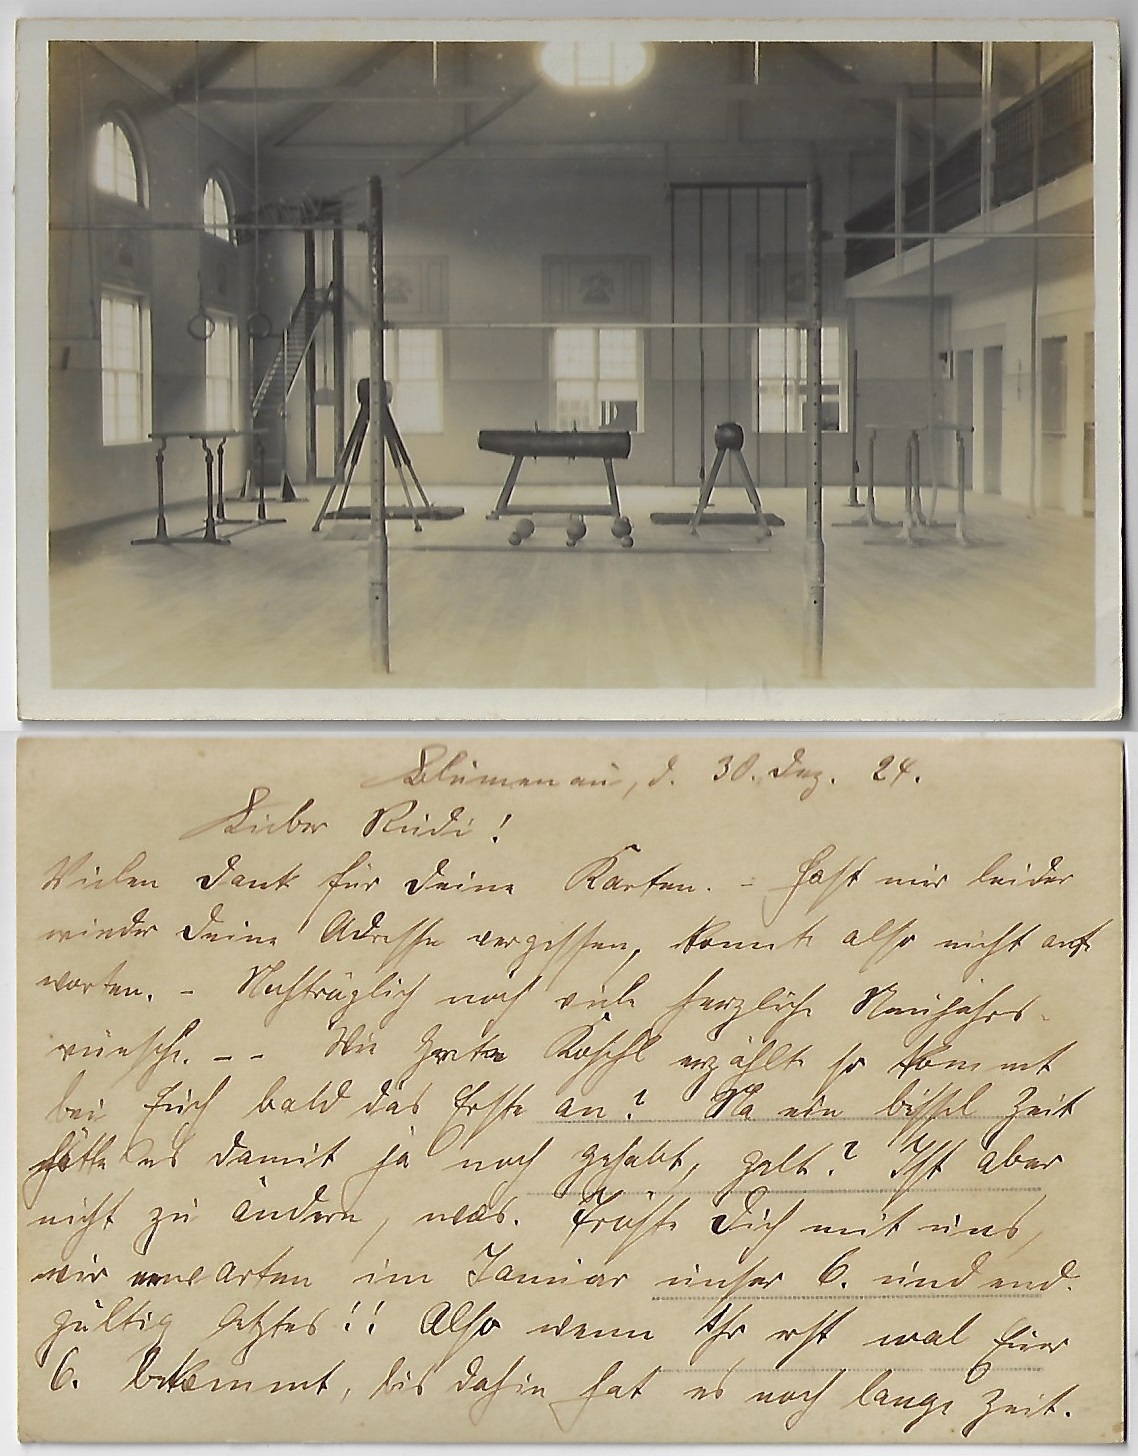 Blumenau, d. 30. Dez. 24.
Lieber Rudi!
Vielen Dank für Deine Karten. - Hast mir leider
wieder Deine Adresse vergessen, konnte also nicht ant
worten. - Nachträglich noch viele herzliche Neujahrs-
wünsche. - - Wie Grete Koschl erzählte so kommt
bei Euch bald das Erste an? Na ein bissel Zeit
hätte es damit ja noch gehabt, gelt? Ist aber
nicht zu ändern, was. Tröste Dich mit uns,
wir erwarten im Januar unser 6. und end-
gültig letztes!! Also wenn Ihr erst mal Euer
6. bekommt, bis dahin hat es noch lange Zeit.